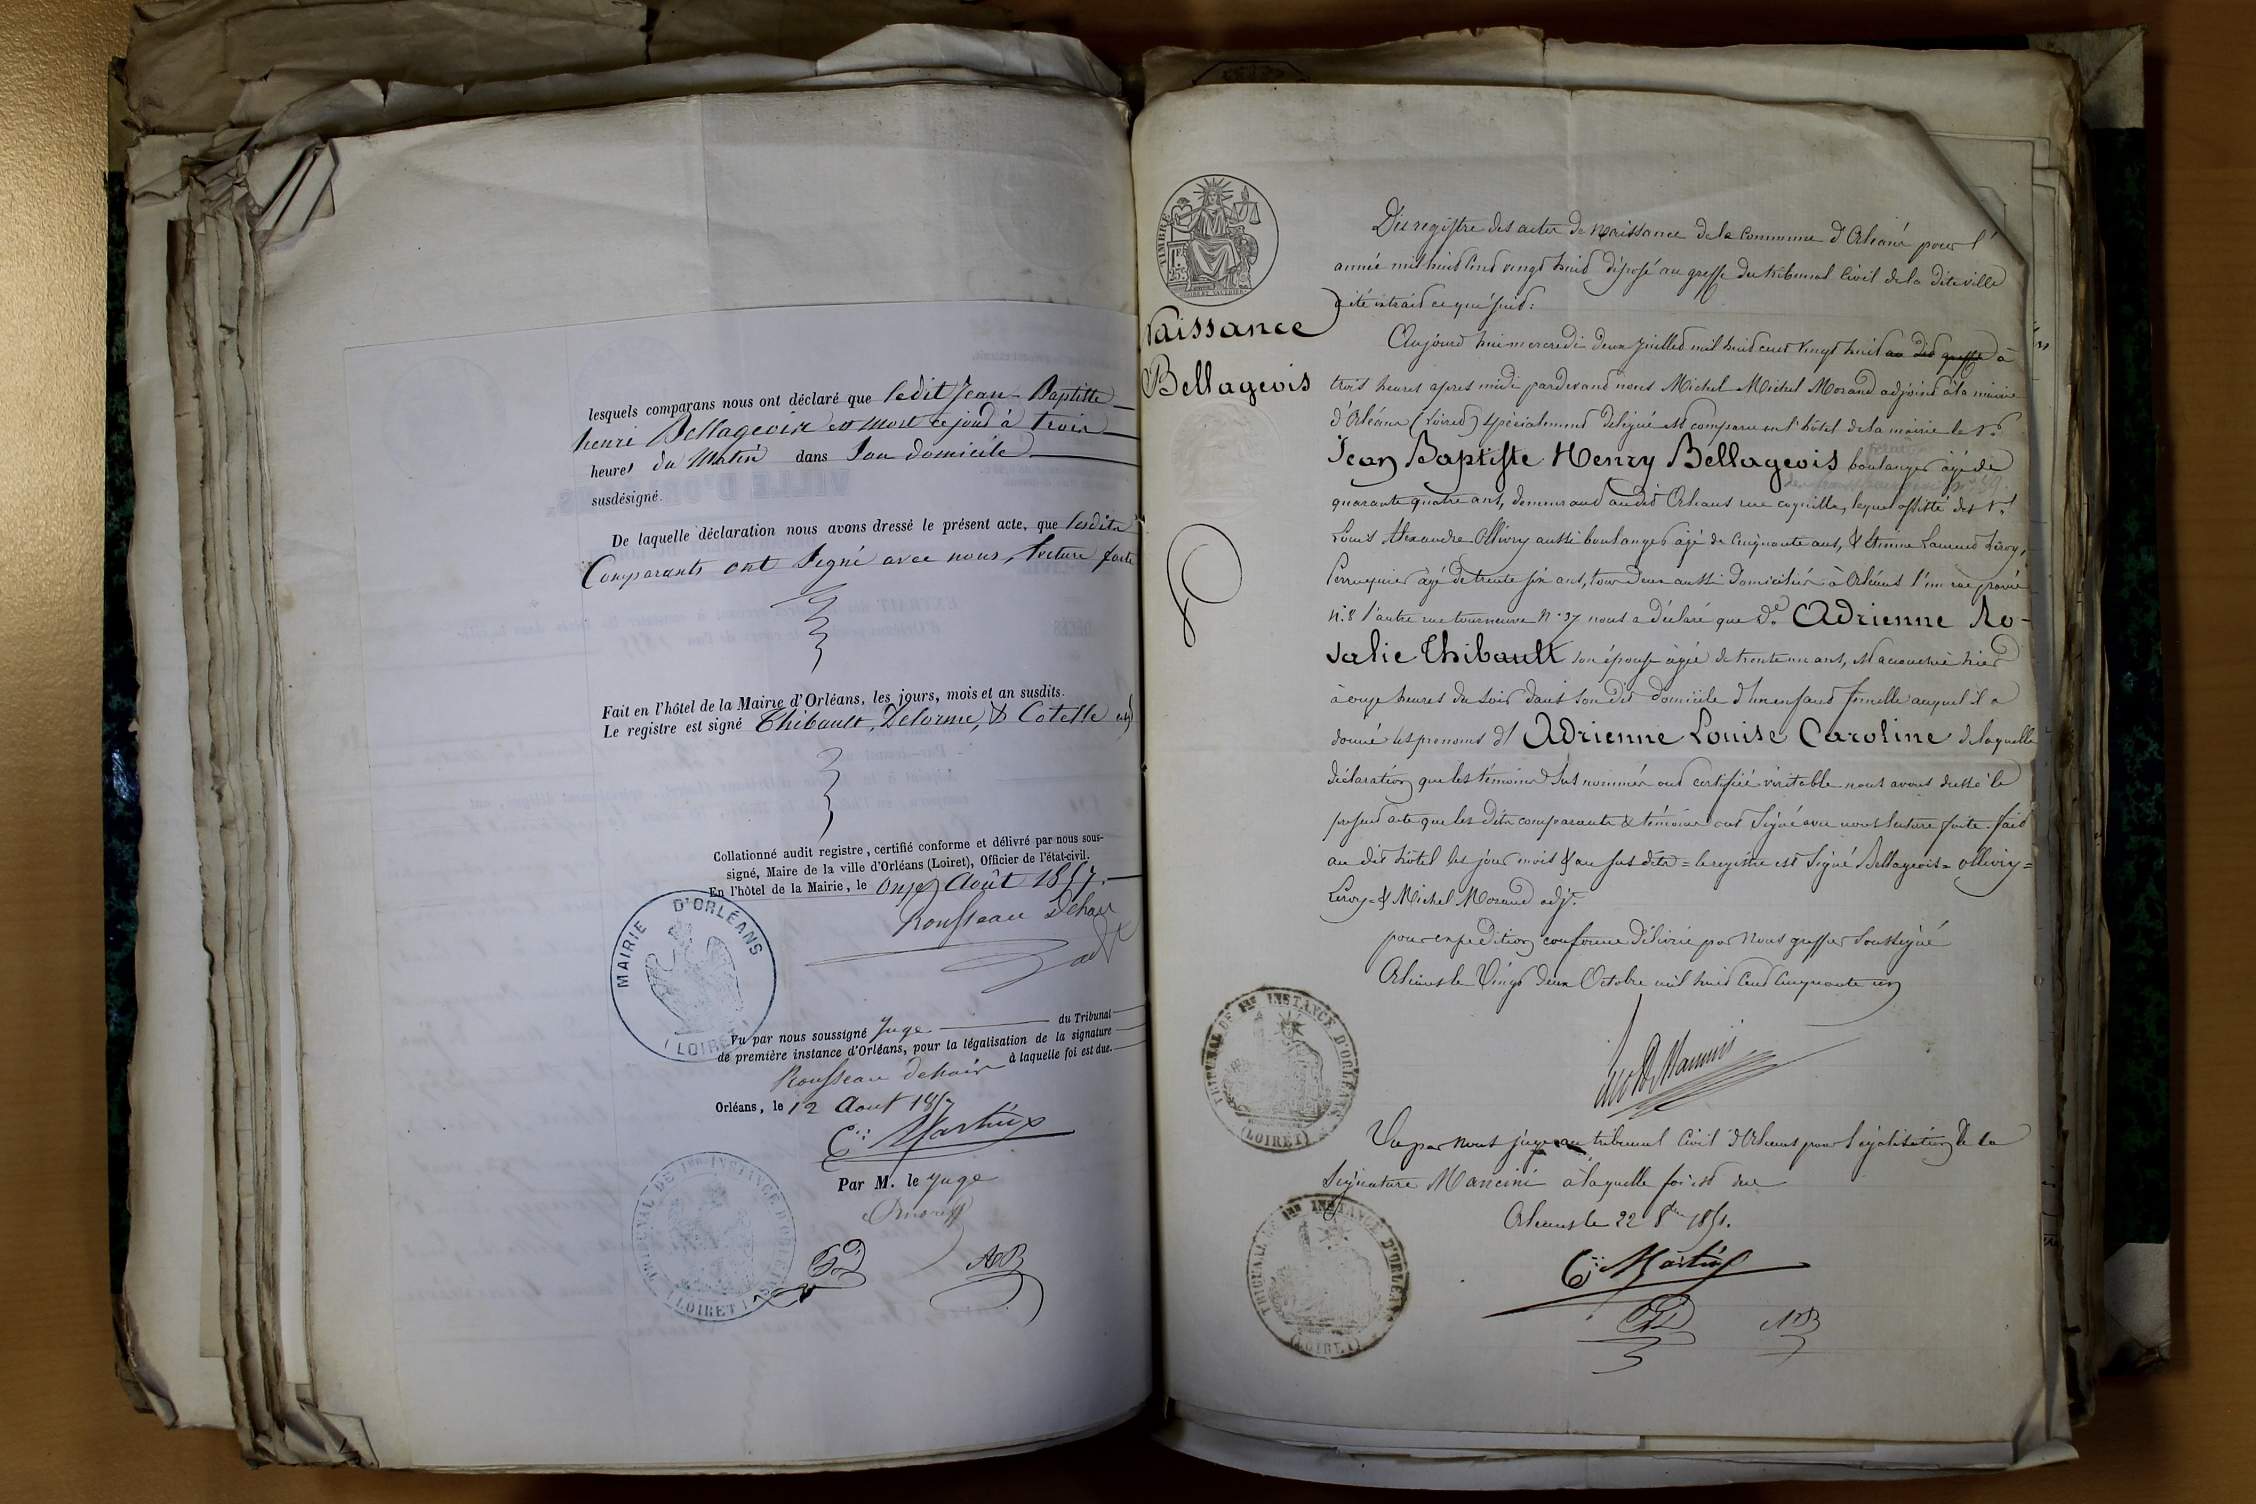 lesquels comparans nous ont déclaré que ledit Jean-Baptiste
henri Bellageoix est mort ce jourd'à trois
heures du Matin dans Son domicile
susdésigné.
De laquelle déclaration nous avons dressé le présent acte, que lesdits
Comparants ont Signé avec nous, lecture faite
Fait en l'hôtel de la Mairie d'Orléans, les jours, mois et an susdits.
Le registre est signé Thibault, Delorme, & Cotelle
Collationné audit registre, certifié conforme et délivré par nous sous-
signé, Maire de la ville d'Orléans (Loiret), Officier de l'état-civil.
En l'hôtel de la Mairie, le onze Août 1857.
Rousseau Dehais
MAIRIE D'ORLÉANS
(LOIRET)
Vu par nous soussigné Juge du Tribunal
de première instance d'Orléans, pour la légalisation de la signature
Rousseau dehais à laquelle foi est due.
Orléans, le 12 Aout 1857
Martin
Par M. le Juge
TRIBUNAL DE 1RE INSTANCE D'ORLÉANS
(LOIRET)
TIMBRE
Naissance
Bellageois
Des registre des actes de Naissance de la Commune d'Orléans pour l'
année mil huit Cent vingt huit déposé au greffe du tribunal Civil de la dite ville
a été extrait ce qui suit:
Aujourd'hui mercredi deux juillet mil huit cent vingt huit au dit greffe à
trois heures après midi pardevant nous Michel Michel Morand adjoint à la mairie
d'Orléans (Loiret) spécialement délégué est comparu en l'hôtel de la mairie le Sr.
Jean Baptiste Henry Bellageois boulanger âgé de
quarante quatre ans, demeurant audit Orléans rue coquille, lequel assisté des Srs
Louis Alexandre Ollivry aussi boulanger âgé de Cinquante ans, & Etienne Laurent Leroy,
Perruquier âgé de trente six ans, tous deux aussi domiciliés à Orléans l'un rue
N.º 8 l'autre rue tourneuve N.º 37 nous a déclaré que De. Adrienne Ro-
salie Thibault son épouse âgée de trente un ans, est accouchée hier
à onze heures du soir dans son dit domicile d'un enfant femelle auquel il a
donné les prénoms d' Adrienne Louise Caroline de laquelle
déclaration que les témoins sus nommés ont certifié véritable nous avons dressé le
présent acte que les dits comparants & témoins ont Signé avec nous lecture faite. fait
au dit hôtel les jour mois & an sus dits = le registre est Signé Bellageois = Ollivry =
Leroy = & Michel Morand adjt.
pour expédition conforme délivrée par Nous greffier Soussigné
Orléans le Vingt deux Octobre mil huit Cent Cinquante un
Vu par Nous juge au tribunal Civil d'Orléans pour légalisation de la
Signature Mancini à laquelle foi est due
Orléans le 22 8bre 1851.
Martin
TRIBUNAL DE 1RE INSTANCE D'ORLÉANS
(LOIRET)
TRIBUNAL DE 1RE INSTANCE D'ORLÉANS
(LOIRET)